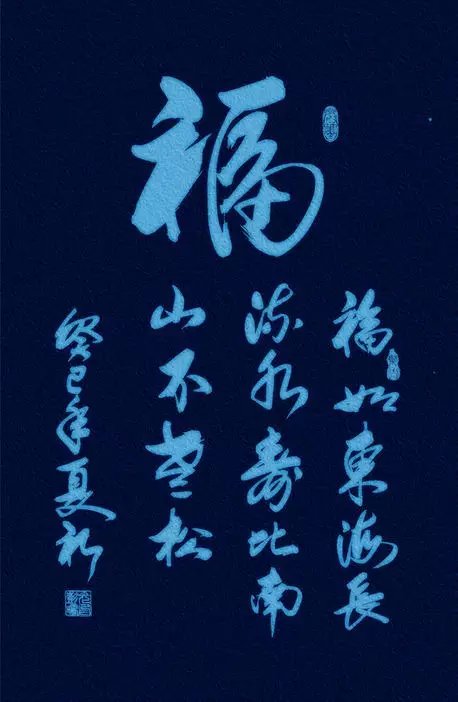 福
福如東海長
流水壽比南
山不老松
癸巳年夏